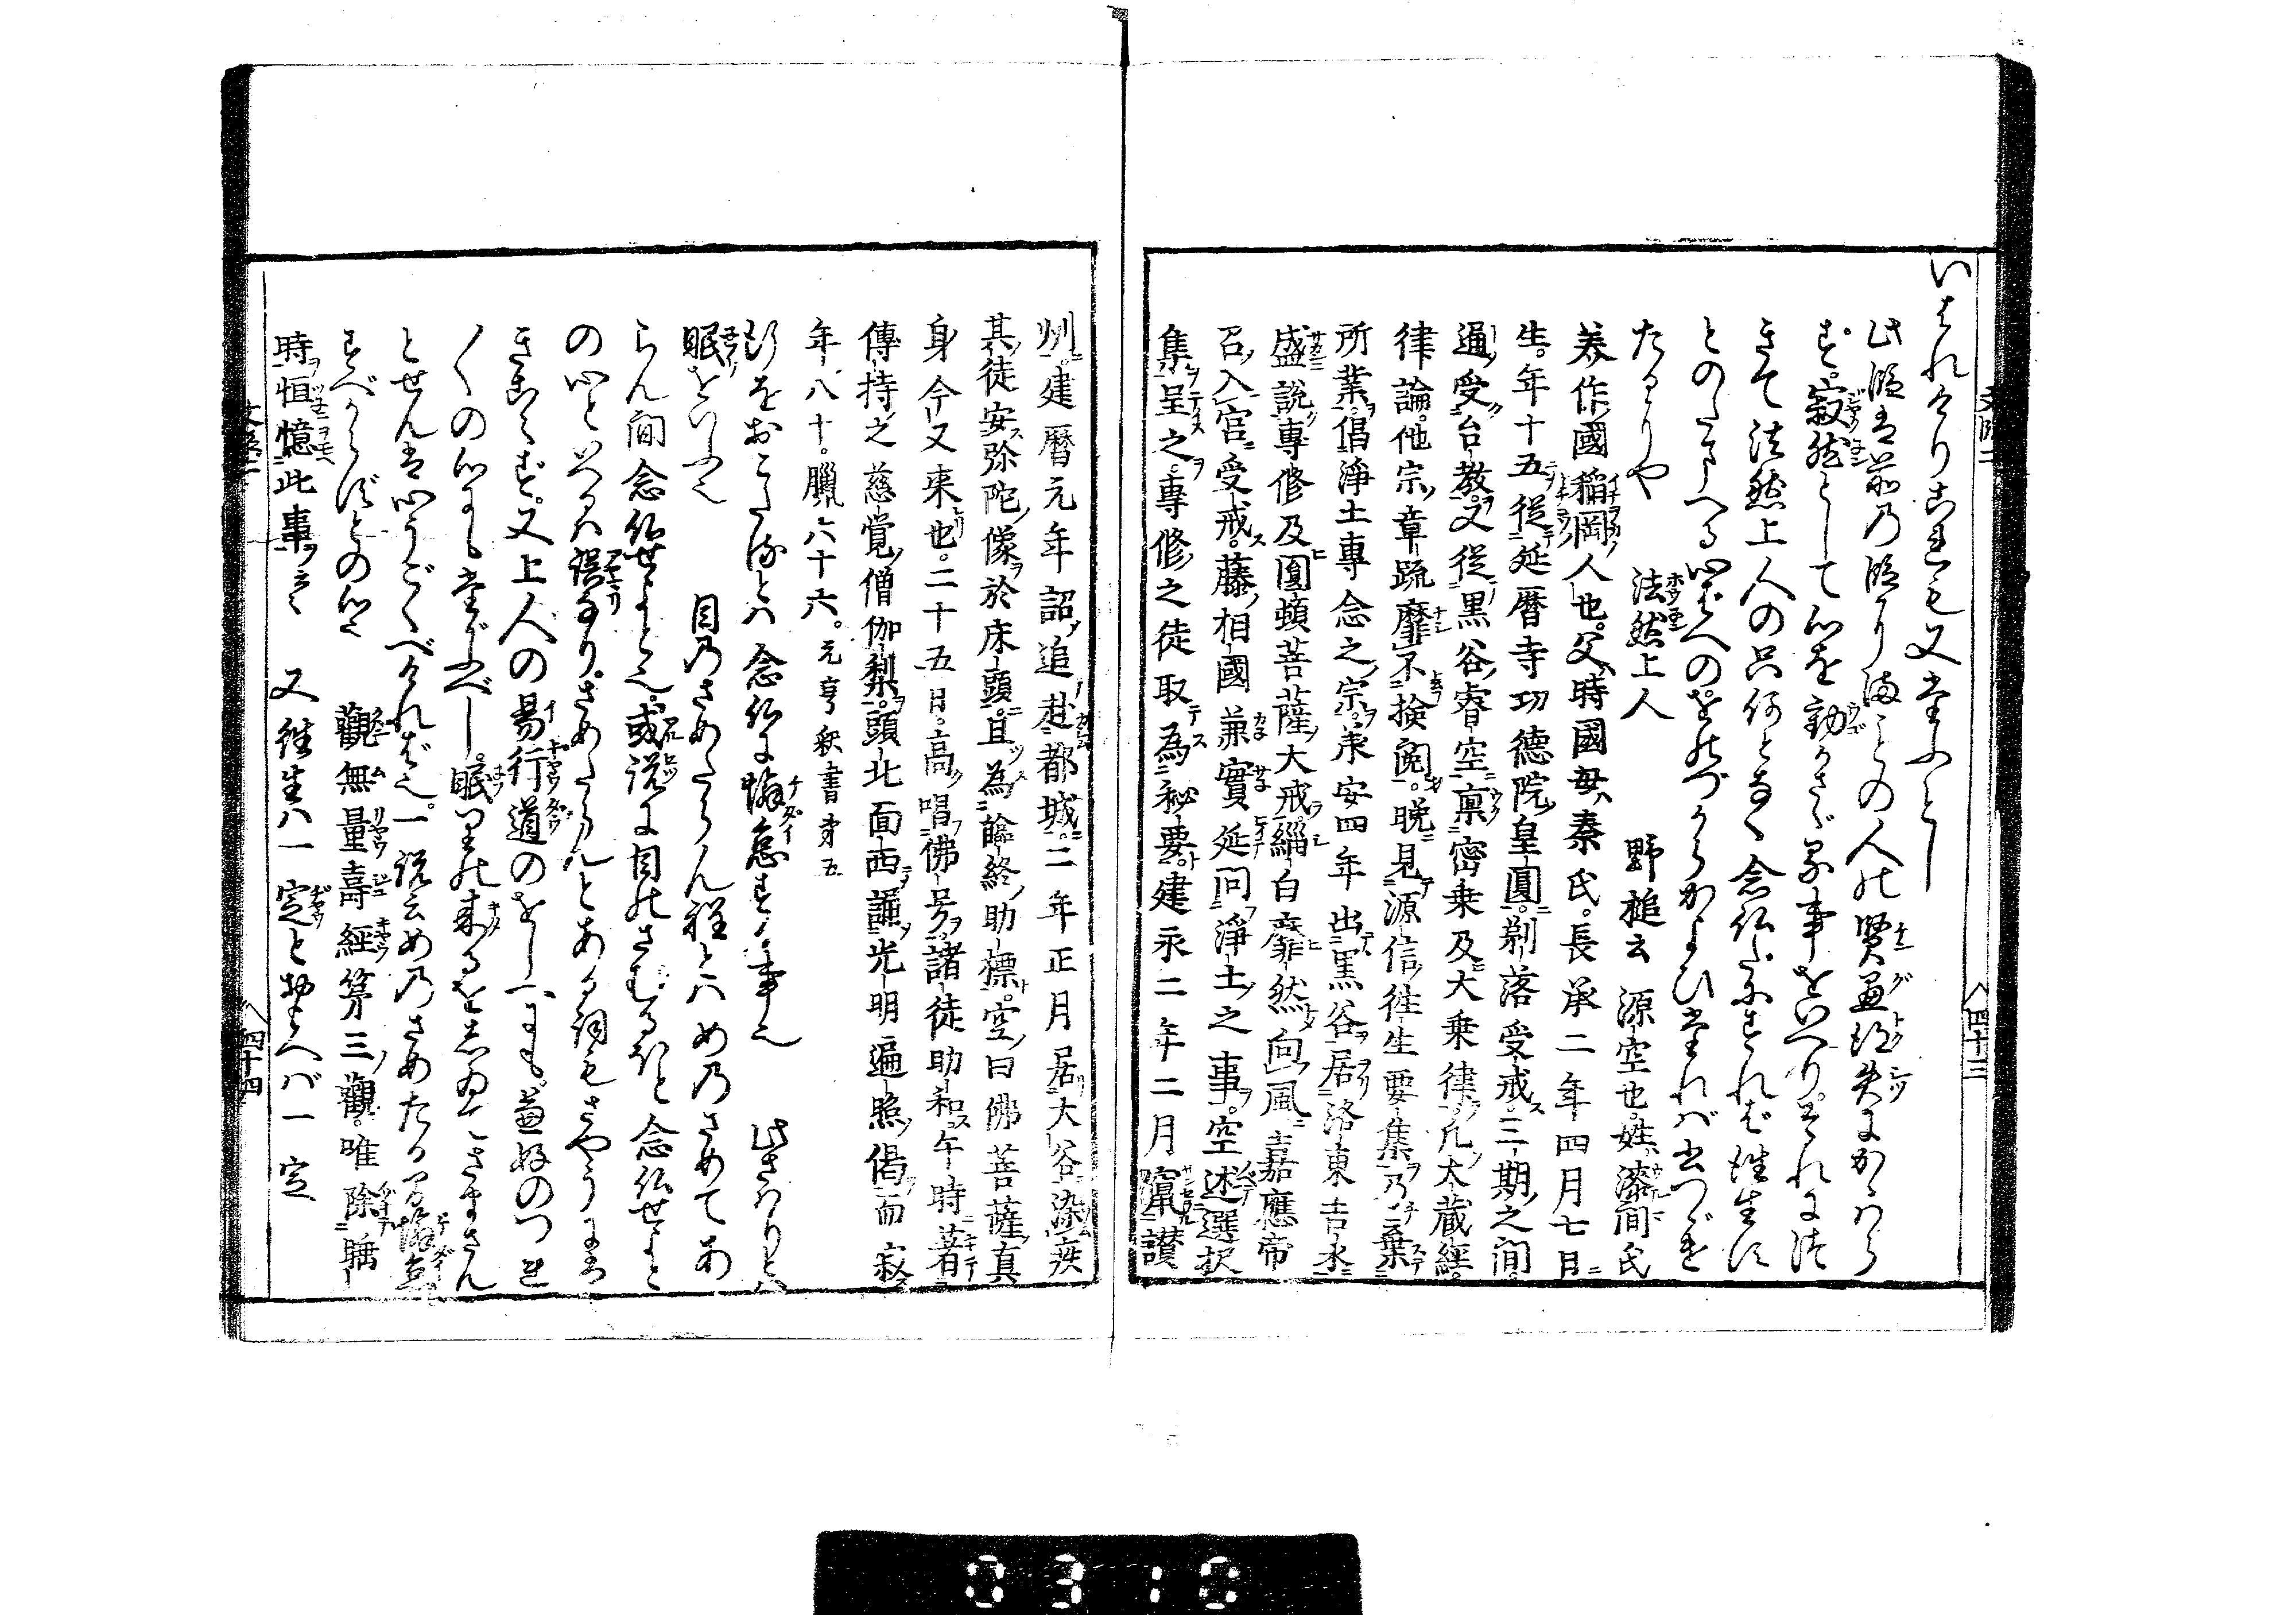 いはれけりこれも又尊とし
此段は前の段にある人の賢愚得失にかゝはら
ず寂然として心を動かさぬ事をいへり。それに法
きて法然上人の只何となく念仏だにすれば往生決
とのたまへる心ばへのをのづからかよひ尊ければ書つゞけ
たるにや　法然上人　野槌云　源空也。姓漆間氏
美作國稲岡人也。父時國母秦氏。長承二年四月七日
生。年十五從延暦寺功德院皇圓。剃落受戒。三期之間。
通受台教。又從黒谷睿空禀密乗及大乗律。凡大蔵經。
律論。他宗章疏靡不撿閲。晩見源信往生要集乃棄
所業。倡淨土專念之宗。承安四年出黒谷居洛東吉水
盛說專修及圓頓菩薩大戒。緇白靡然向風。嘉應帝
召入宮受戒。藤相國兼實延問淨土之事。空述選択
集呈之。專修之徒取為秘要。建永二年二月竄讃
州。建暦元年詔追赴都城。二年正月居大谷染疾
其徒安弥陀像於床頭。且為臨終助標。空曰佛菩薩真
身今又来也。二十五日。高唱佛号。諸徒助和。午時著
傳持之慈覚僧伽梨。頭北面西誦光明遍照偈而寂
年八十。臘六十六。元亨釈書第五
行をおこたるとは　念仏に懈怠する事也　此さはりとは
眠をいふ也　目のさめたらん程とは　めのさめてあ
らん間念仏せよと也。或説に目のさむるほど念仏せよと
の心といへるは誤なり。さめたらんとある詞もさやうにはき
きこえず。又上人の易行道のをしへにも。兼好のつれ
〳〵の心にも尊ぶべし。眠の来るをしゐてさまさん
とせんは心うごくべければ也。一説云めのさめたる間懈怠
すべからずとの心也　觀無量壽經第三觀。唯除睡
時恒憶此事云云　又往生は一定と思へば一定
文段二　四十三
文段二　四十四
0310